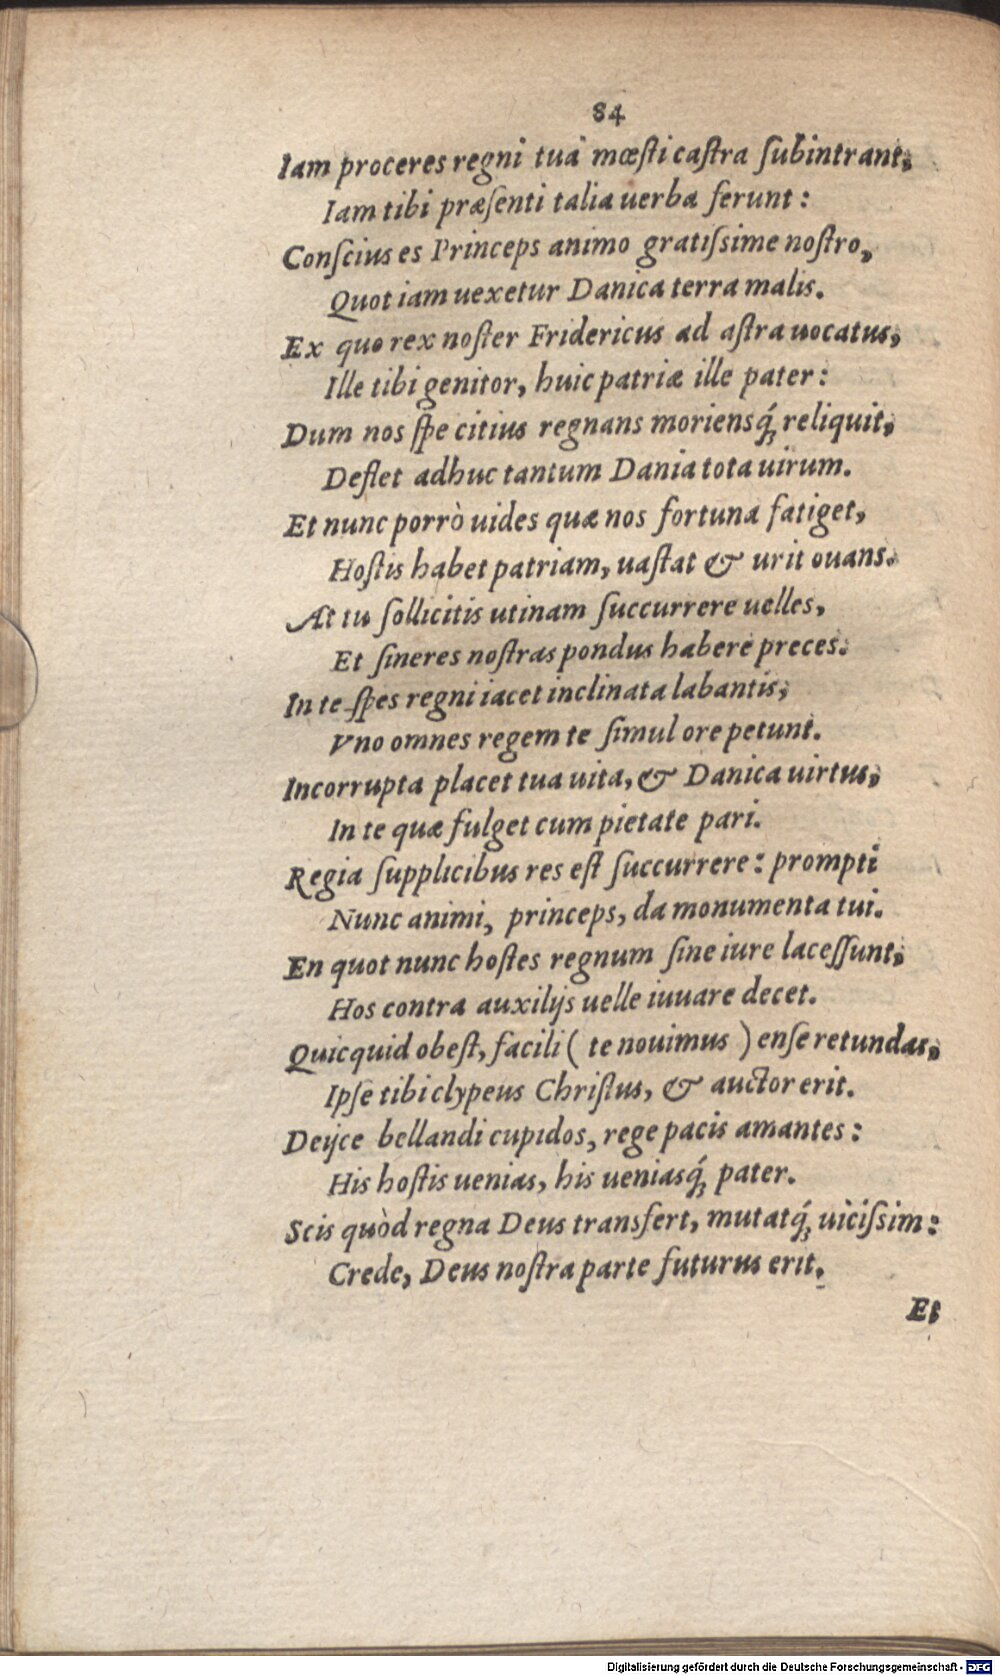 84
Iam proceres regni tua mœſti caſtra ſubintrant,
Iam tibi præſenti talia uerba ferunt:
Conſcius es Princeps animo gratiſsime noſtro,
Quot iam uexetur Danica terra malis.
Ex quo rex noſter Fridericus ad aſtra uocatus,
Ille tibi genitor, huic patriæ ille pater:
Dum nos ſpe citius regnans moriensq́; reliquit,
Deflet adhuc tantum Dania tota uirum.
Et nunc porrò uides quæ nos fortuna fatiget,
Hoſtis habet patriam, uaſtat & urit ouans.
At tu ſollicitis utinam ſuccurrere uelles,
Et ſineres noſtras pondus habere preces.
In te ſpes regni iacet inclinata labantis,
Vno omnes regem te ſimul ore petunt.
Incorrupta placet tua uita, & Danica uirtus,
In te quæ fulget cum pietate pari.
Regia ſupplicibus res eſt ſuccurrere: prompti
Nunc animi, princeps, da monumenta tui.
En quot nunc hoſtes regnum ſine iure laceſſunt,
Hos contra auxilijs uelle iuuare decet.
Quicquid obeſt, facili ( te nouimus ) enſe retundas,
Ipſe tibi clypeus Chriſtus, & auctor erit.
Deijce bellandi cupidos, rege pacis amantes:
His hoſtis uenias, his ueniasq́; pater.
Scis quòd regna Deus transfert, mutatq́; uiciſsim:
Crede, Deus noſtra parte futurus erit.
Et
Digitalisierung gefördert durch die Deutsche Forschungsgemeinschaft - DFG